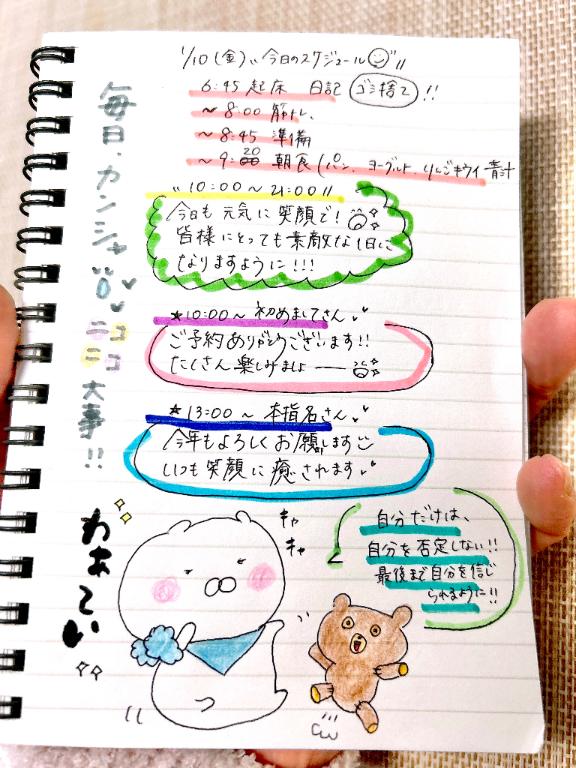 1/10(金)、今日のスケジュール!!
6:45 起床 日記 ゴミ捨て!!
~8:00 筋トレ、
~8:45 準備
~9:20 朝食(パン、ヨーグルト、りんごキウイ 青汁
"10:00~21:00!!
今日も元気に笑顔で!
皆様にとっても素敵な1日に
なりますように!!!
★10:00~ 初めましてさん
ご予約ありがとうございます!!
たくさん楽しみましょーー
★13:00~ 本指名さん
今年もよろしくお願いします
いつも笑顔に癒されます
毎日、カンシャ
ニコ
ニコ
大事!!
わぁーい
キャ
キャ
自分だけは、
自分を否定しない!!
最後まで自分を信じ
られるように!!